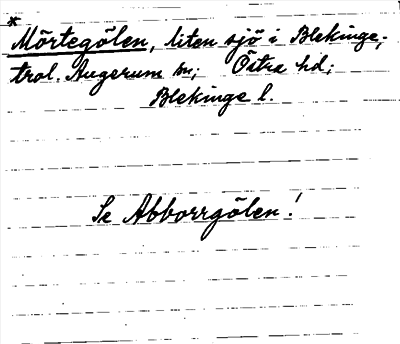 *
Mörtegölen, liten sjö i Blekinge;
trol. Augerum sn; Östra hd;
Blekinge l.
Se Abborrgölen!